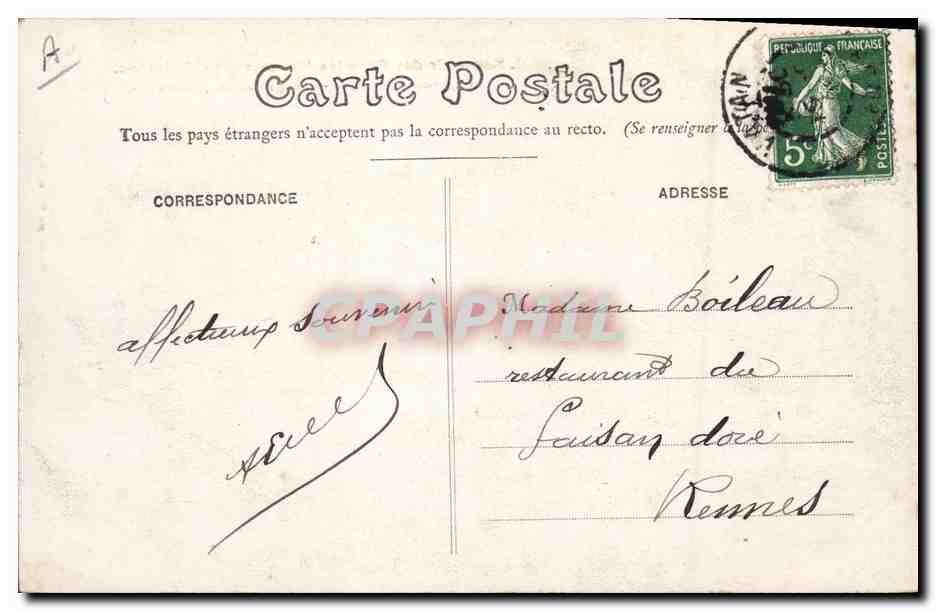 A
Carte Postale
Tous les pays étrangers n'acceptent pas la correspondance au recto. (Se renseigner à la
RÉPUBLIQUE FRANÇAISE
5c
POSTES
CORRESPONDANCE
ADRESSE
affectueux souvenir
CPAPHIL
Madame Boileau
restaurant du
Faisan doré
Rennes